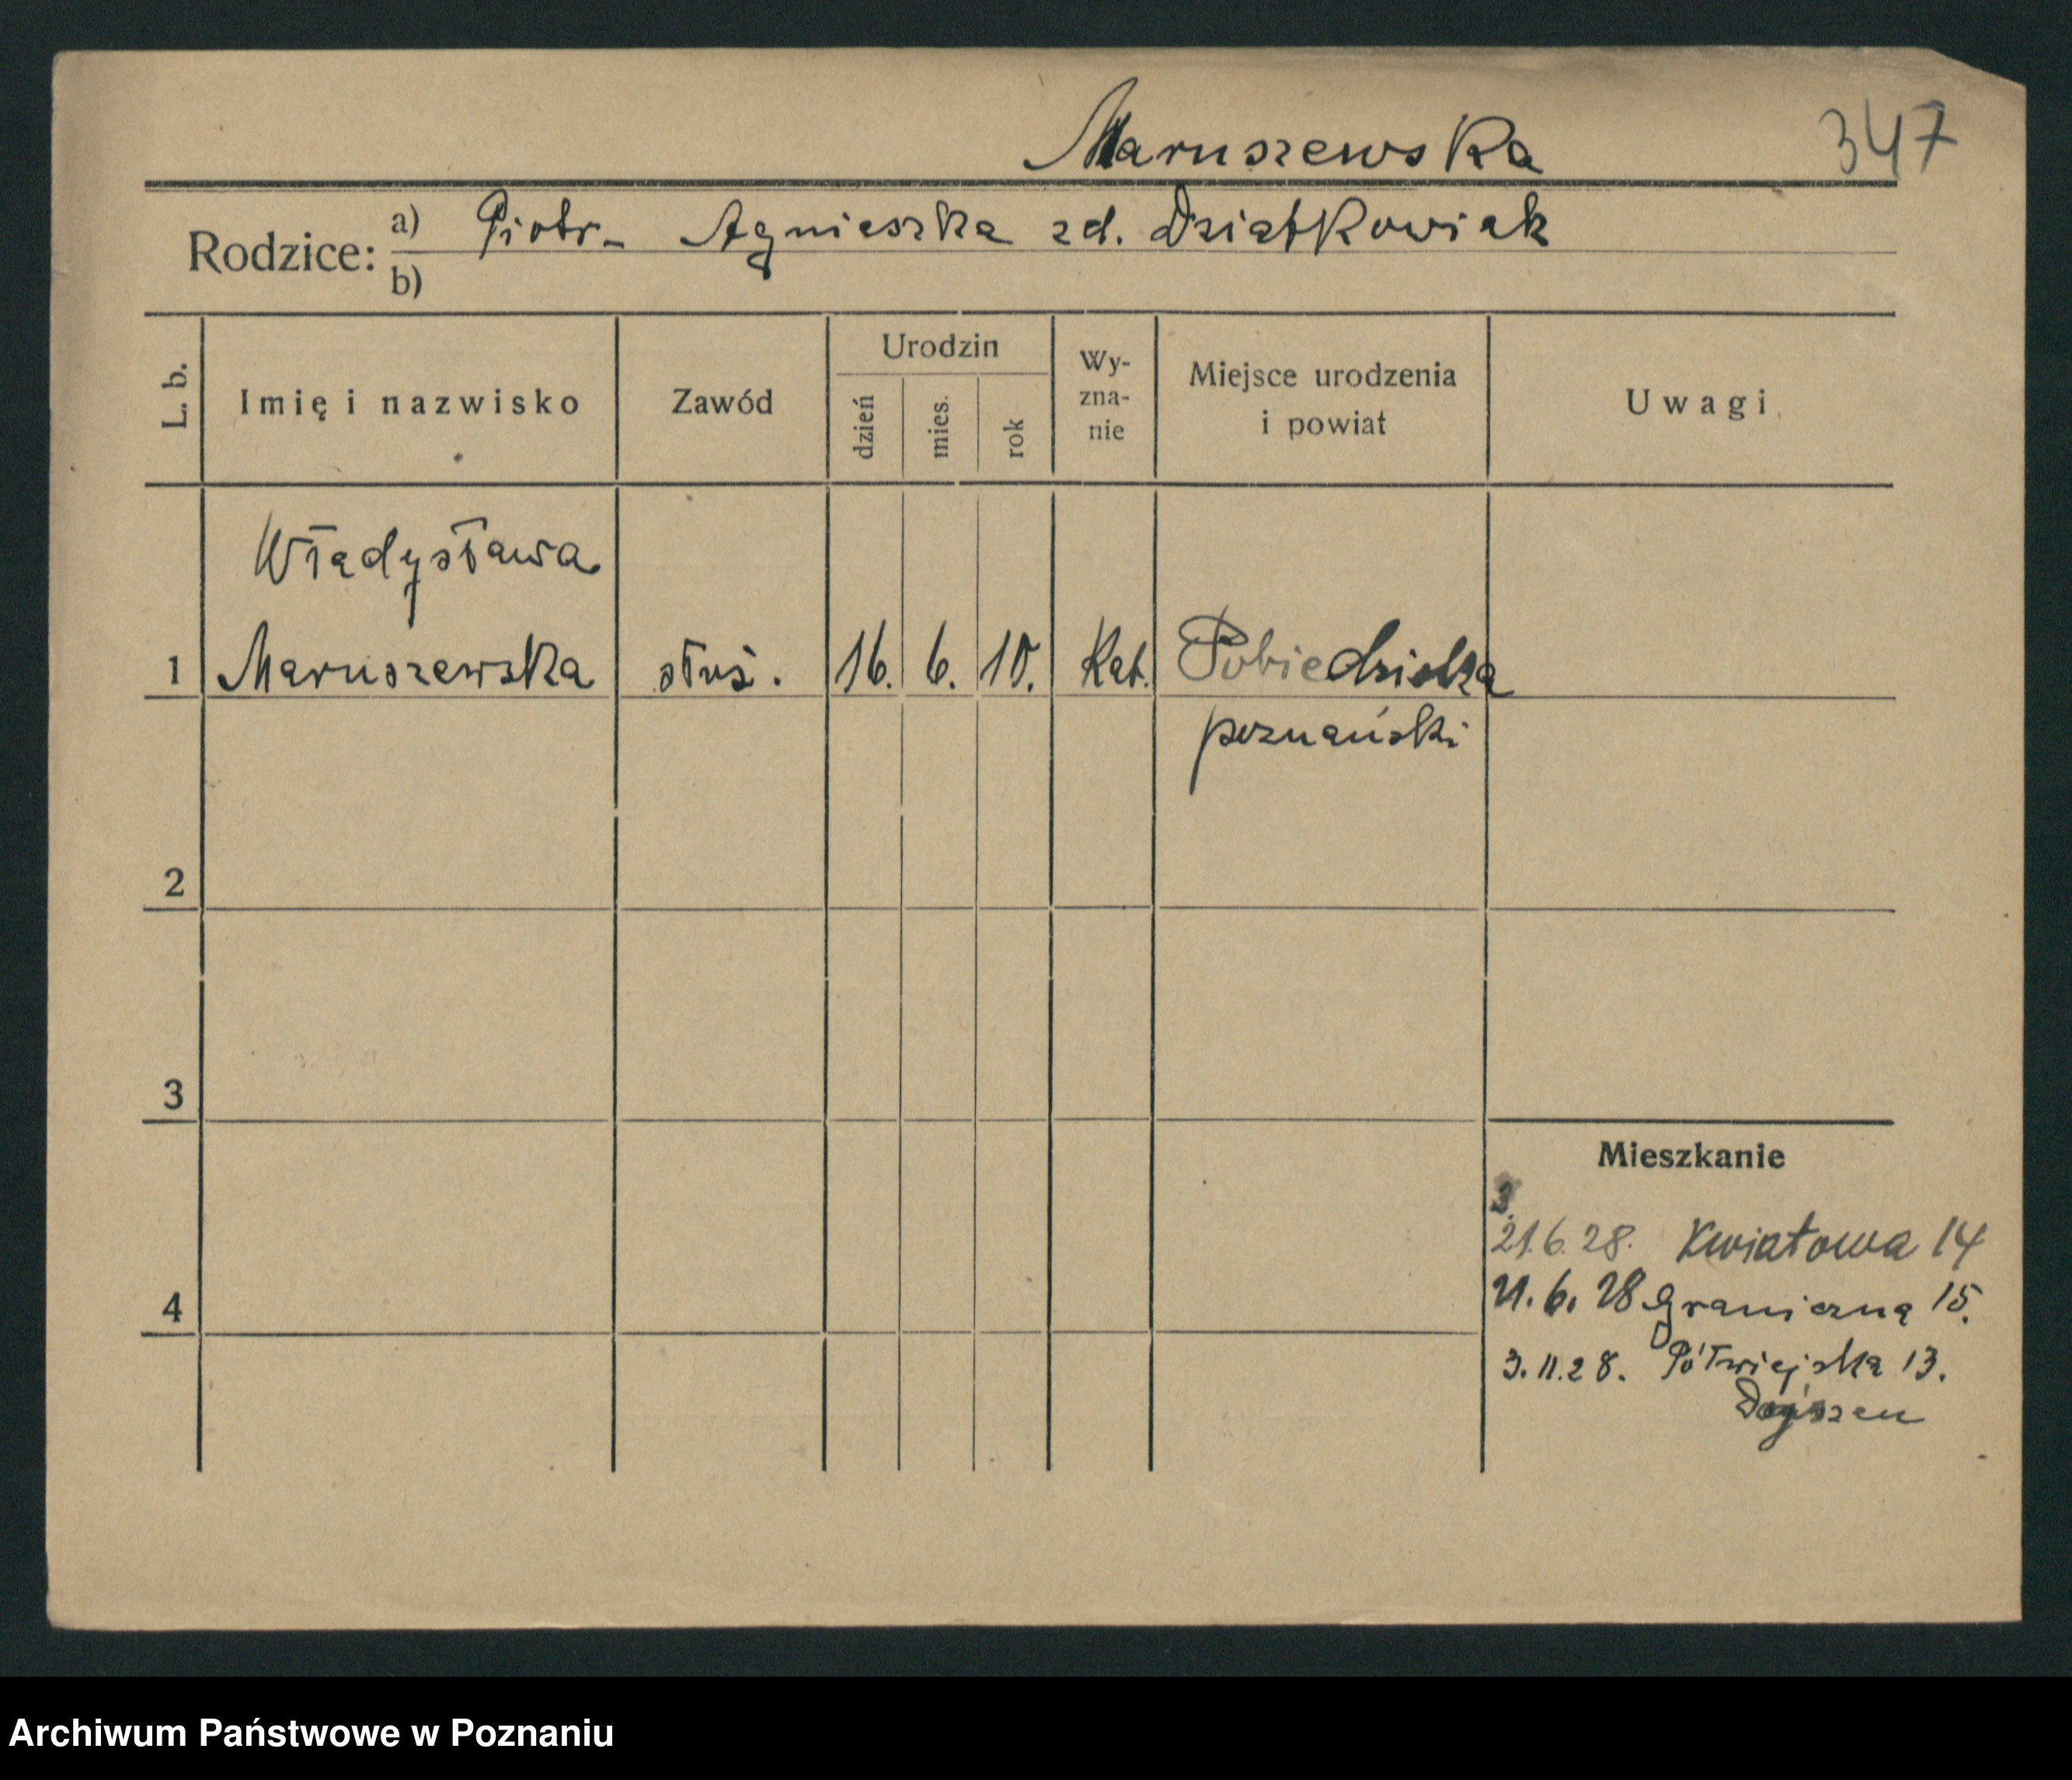 Maruszewska 347
Rodzice: a) Piotr - Agnieszka zd. Dziatkowiak
b)
L. b. Imię i nazwisko Zawód Urodzin dzień mies. rok Wy-zna-nie Miejsce urodzenia i powiat Uwagi
Władysława
1 Maruszewska służ. 16. 6. 10. Kat. Pobiedziska
poznański
2
3
Mieszkanie
3.
21.6.28. Kwiatowa 14
4 21.6.28 Graniczna 15.
3.11.28. Półwiejska 13.
Archiwum Państwowe w Poznaniu